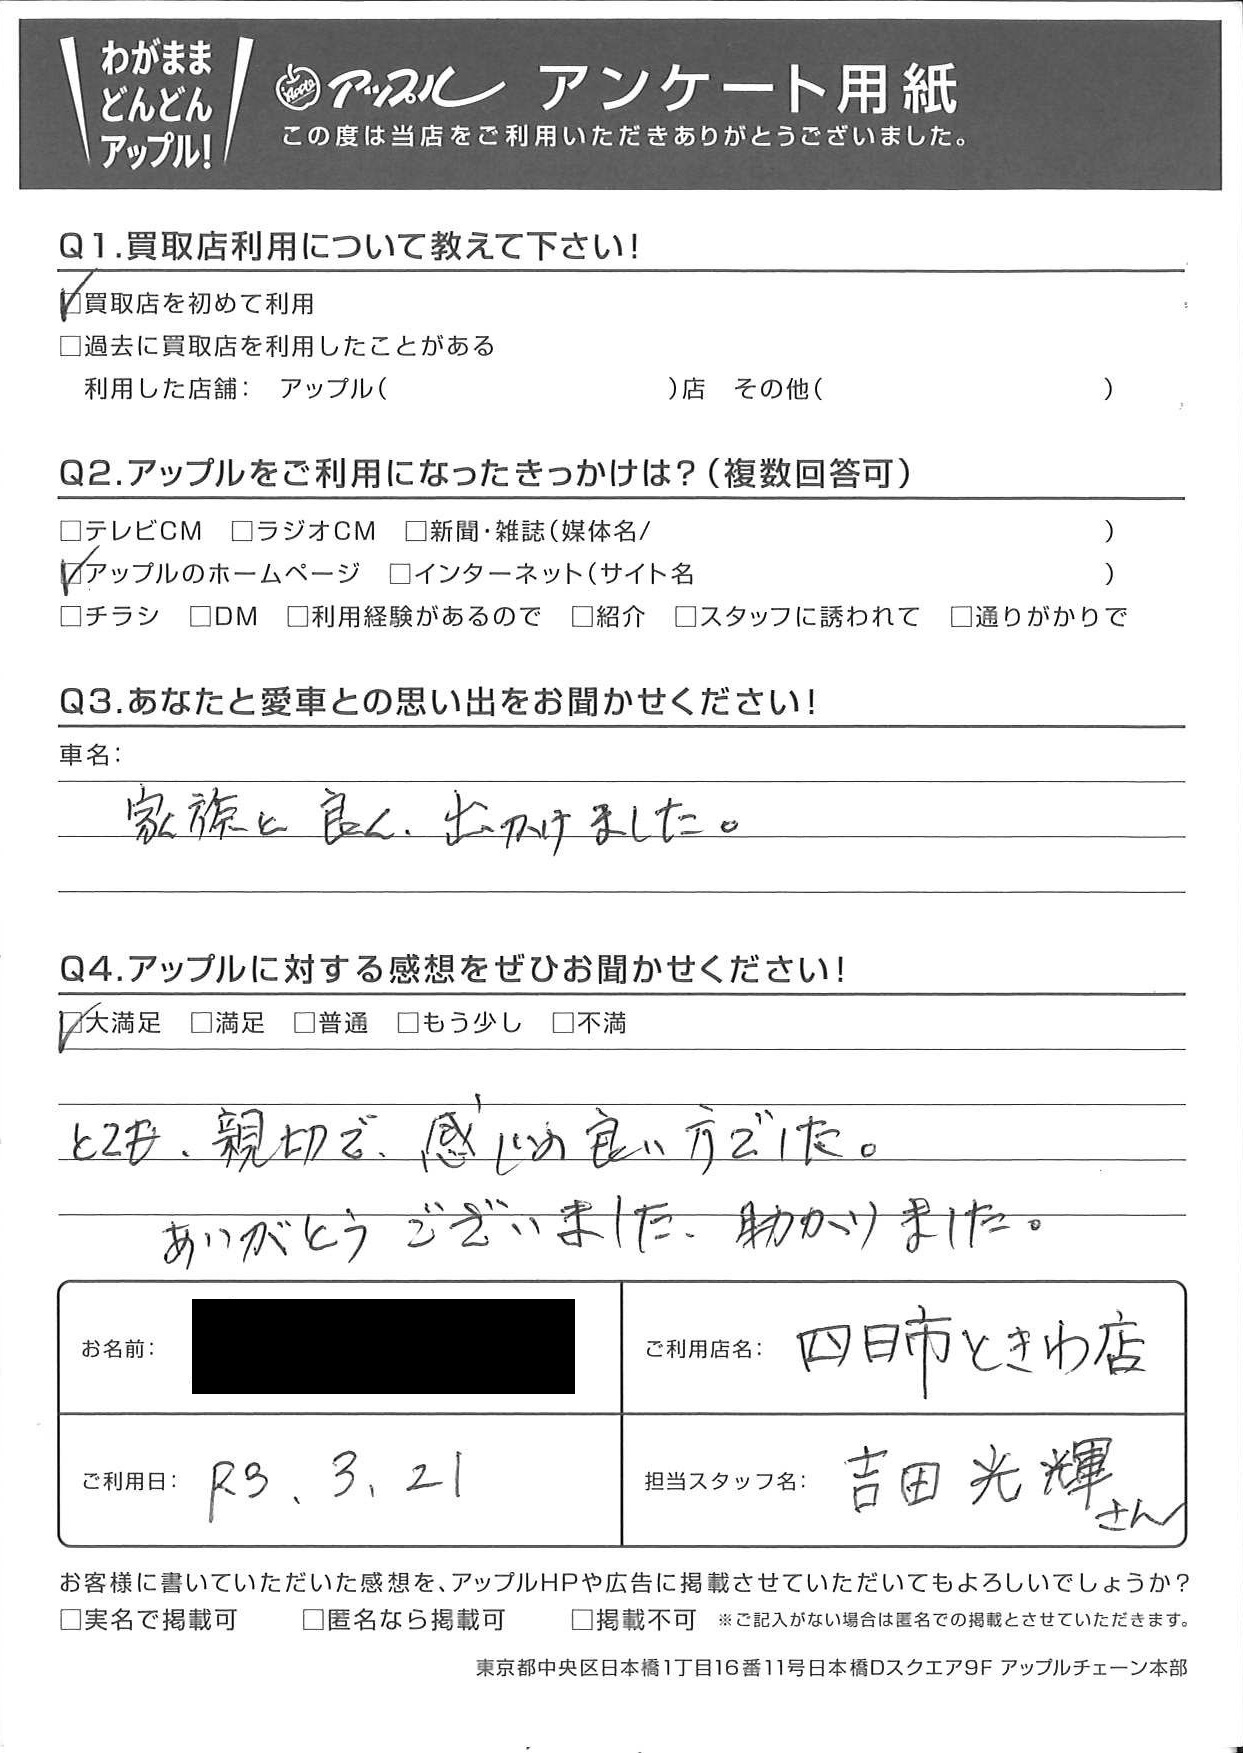 わがまま
どんどん
アップル!
Apple アップル アンケート用紙
この度は当店をご利用いただきありがとうございました。
Q1.買取店利用について教えて下さい!
☑買取店を初めて利用
□過去に買取店を利用したことがある
利用した店舗: アップル( )店 その他( )
Q2.アップルをご利用になったきっかけは?(複数回答可)
□テレビCM □ラジオCM □新聞・雑誌(媒体名/ )
☑アップルのホームページ □インターネット(サイト名 )
□チラシ □DM □利用経験があるので □紹介 □スタッフに誘われて □通りがかりで
Q3.あなたと愛車との思い出をお聞かせください!
車名:
家族と良く、出かけました。
Q4.アップルに対する感想をぜひお聞かせください!
☑大満足 □満足 □普通 □もう少し □不満
とても、親切で、感じの良い方でした。
ありがとうございました、助かりました。
お名前:
ご利用店名: 四日市ときわ店
ご利用日: R3、3、21
担当スタッフ名: 吉田光輝さん
お客様に書いていただいた感想を、アップルHPや広告に掲載させていただいてもよろしいでしょうか?
□実名で掲載可 □匿名なら掲載可 □掲載不可 ※ご記入がない場合は匿名での掲載とさせていただきます。
東京都中央区日本橋1丁目16番11号日本橋Dスクエア9F アップルチェーン本部